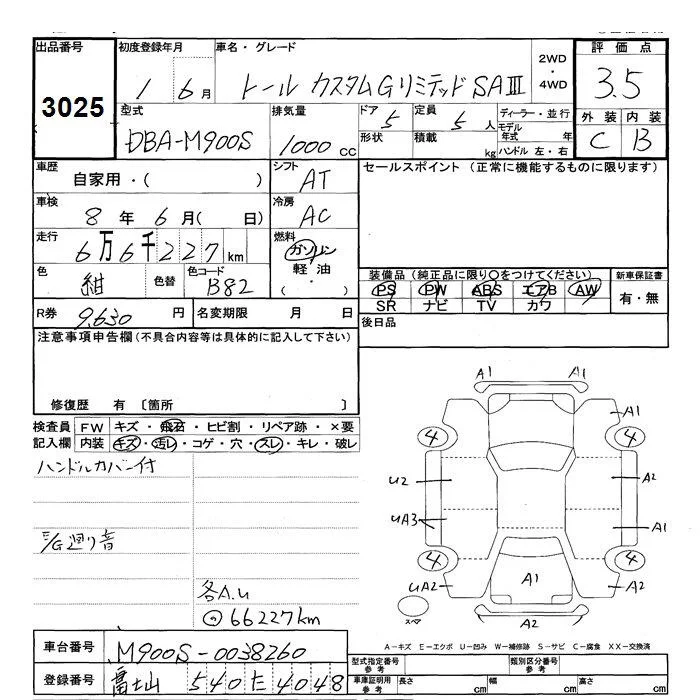 出品番号
3025
初度登録年月
1 6月
車名・グレード
トール カスタムGリミテッドSAⅢ
2WD
・
4WD
評価点
3.5
外装 内装
C B
型式
DBA-M900S
排気量
1000 cc
ドア 5
形状
定員 5 人
積載 kg
ディーラー・並行
モデル年式 年
ハンドル 左・右
車歴
自家用・( )
シフト
AT
セールスポイント (正常に機能するものに限ります)
車検
8年 6月( 日)
冷房
AC
走行
6万6千227km
燃料
ガソリン
軽油
( ・ )
色
紺
色替
色コード
B82
装備品(純正品に限り○をつけてください)
PS PW ABS エアB AW
SR ナビ TV カワ
新車保証書
有・無
R券 9,630 円
名変期限 月 日
後日品
注意事項申告欄(不具合内容等は具体的に記入して下さい)
修復歴 有 〔箇所 〕
検査員 FW キズ・飛石・ヒビ割・リペア跡・×要
記入欄 内装 キズ・汚レ・コゲ・穴・スレ・キレ・破レ
ハンドルカバー付
E/G廻り音
各A.U
66227km
A1 A1
A1
4 4
U2 A2
UA3 A1
4 4
UA2 A1 A2
スペア
A2
A-キズ E-エクボ U-凹み W-補修跡 S-サビ C-腐食 XX-交換済
車台番号 M900S-0038260
登録番号 富士山 540 た 4048
型式指定番号 参考
類別区分番号 参考
車庫証明用 参考 長さ cm 幅 cm 高さ cm